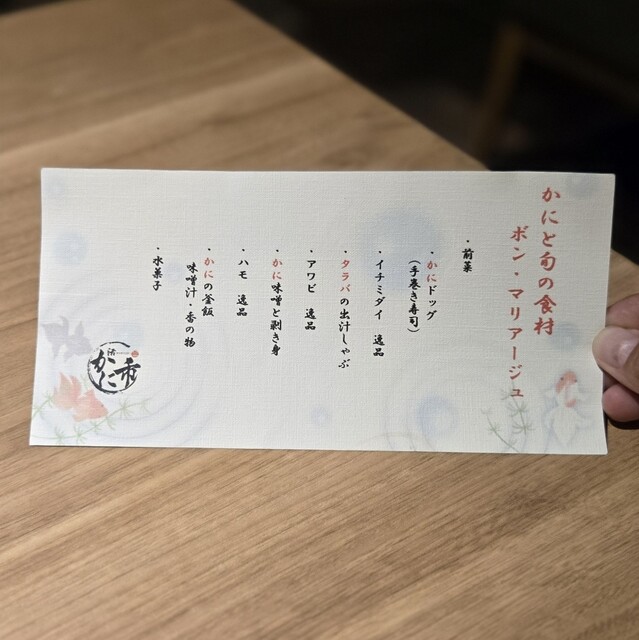 かにと旬の食材
ボン・マリアージュ
・前菜
・かにドッグ
（手巻き寿司）
・イチミダイ 逸品
・タラバの出汁しゃぶ
・アワビ 逸品
・かに味噌と剥き身
・ハモ 逸品
・かにの釜飯
味噌汁・香の物
・水菓子
かに市